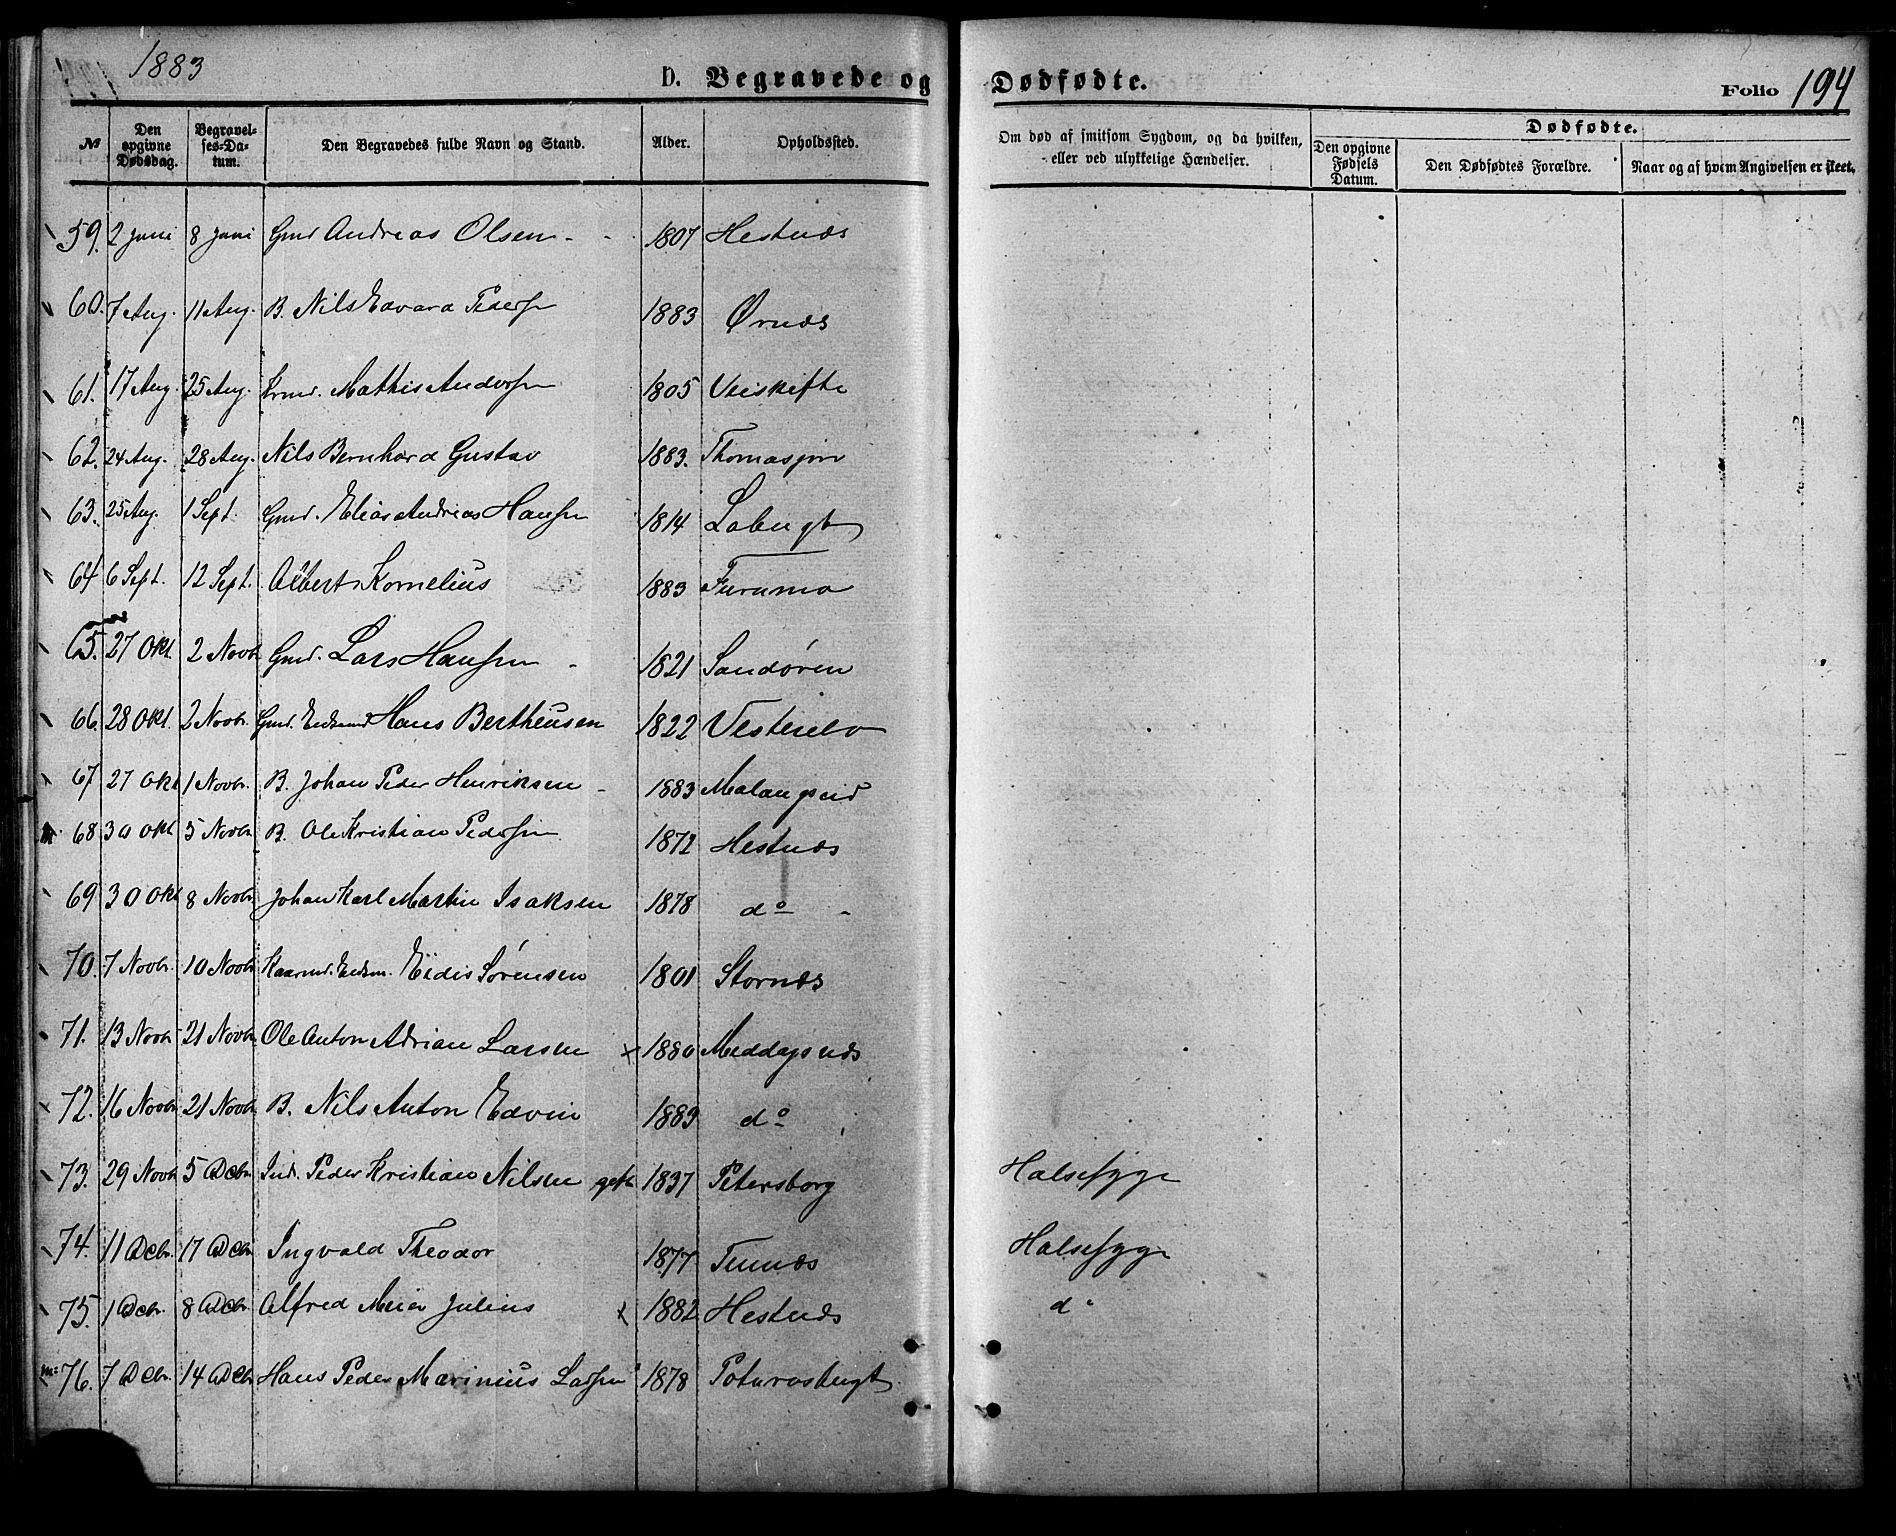 1883
D. Begravede og Dødfødte.
Folio 194
№ Den opgivne Dødsdag. Begravelses-Datum. Den Begravedes fulde Navn og Stand. Alder. Opholdsted. Om død af smitsom Sygdom, og da hvilken, eller ved ulykkelige Hændelser. Dødfødte. Den opgivne Fødsels Datum. Den Dødfødtes Forældre. Naar og af hvem Angivelsen er skeet.
59. 2 Juni 8 Juni Gmd Andreas Olsen 1807 Hestnæs
60. 7 Aug. 11 Aug. B. Nils Edvard Pedersen 1883 Ørnæs
61. 17 Aug. 25 Aug. Mathis Andersen 1805
62. 24 Aug. 28 Aug. Nils Bernhard Gustav 1883.
63. 25 Aug. 1 Sept. Gmd. Elias Andreas Hansen 1814
64 6 Sept. 12 Sept. Albert Kornelius 1883 Furumo
65. 27 Okt. 2 Novbr Gmd. Lars Hansen 1821 Sandøren
66. 28 Okt. 2 Novbr. Gmd. Hans Bertheusen 1822
67 27 Okt 1 Novbr. B. Johan Peder Henriksen 1883 Malangseid
68 30 Okt 5 Novbr B. Ole Kristian Pedersen 1872 Hestnæs
69 30 Okt 8 Novbr. Johan Karl Martin Isaksen 1878 do
70. 7 Novbr. 10 Novbr Sørensen 1801 Stornæs
71. 13 Novbr 21 Novbr. Ole Anton Adrian Larsen x 1880 Meddagsnæs
72. 16 Novbr 21 Novbr B. Nils Anton Edvin 1883 do
73. 29 Novbr 5 Dcbr. Ind. Peder Kristian Nilsen 1837 Petersborg Halsesyge
74. 11 Dcbr. 17 Dcbr Ingvald Theodor 1877 Halsesyge
75. 1 Dcbr. 8 Dcbr Alfred Meier Julius x 1882 Hestnæs do
76. 7 Dcbr. 14 Dcbr Hans Peder Marinius Larsen 1878